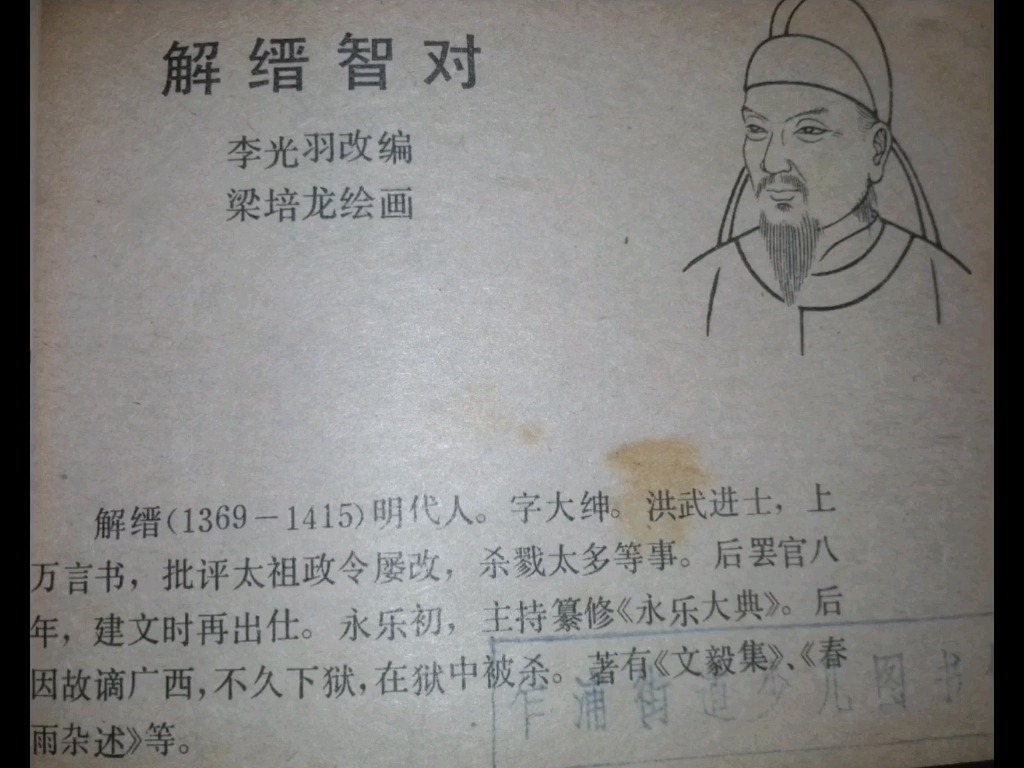 解缙智对
李光羽改编
梁培龙绘画
解缙(1369－1415)明代人。字大绅。洪武进士，上
万言书，批评太祖政令屡改，杀戮太多等事。后罢官八
年，建文时再出仕。永乐初，主持纂修《永乐大典》。后
因故谪广西，不久下狱，在狱中被杀。著有《文毅集》、《春
雨杂述》等。
乍浦街道少儿图书